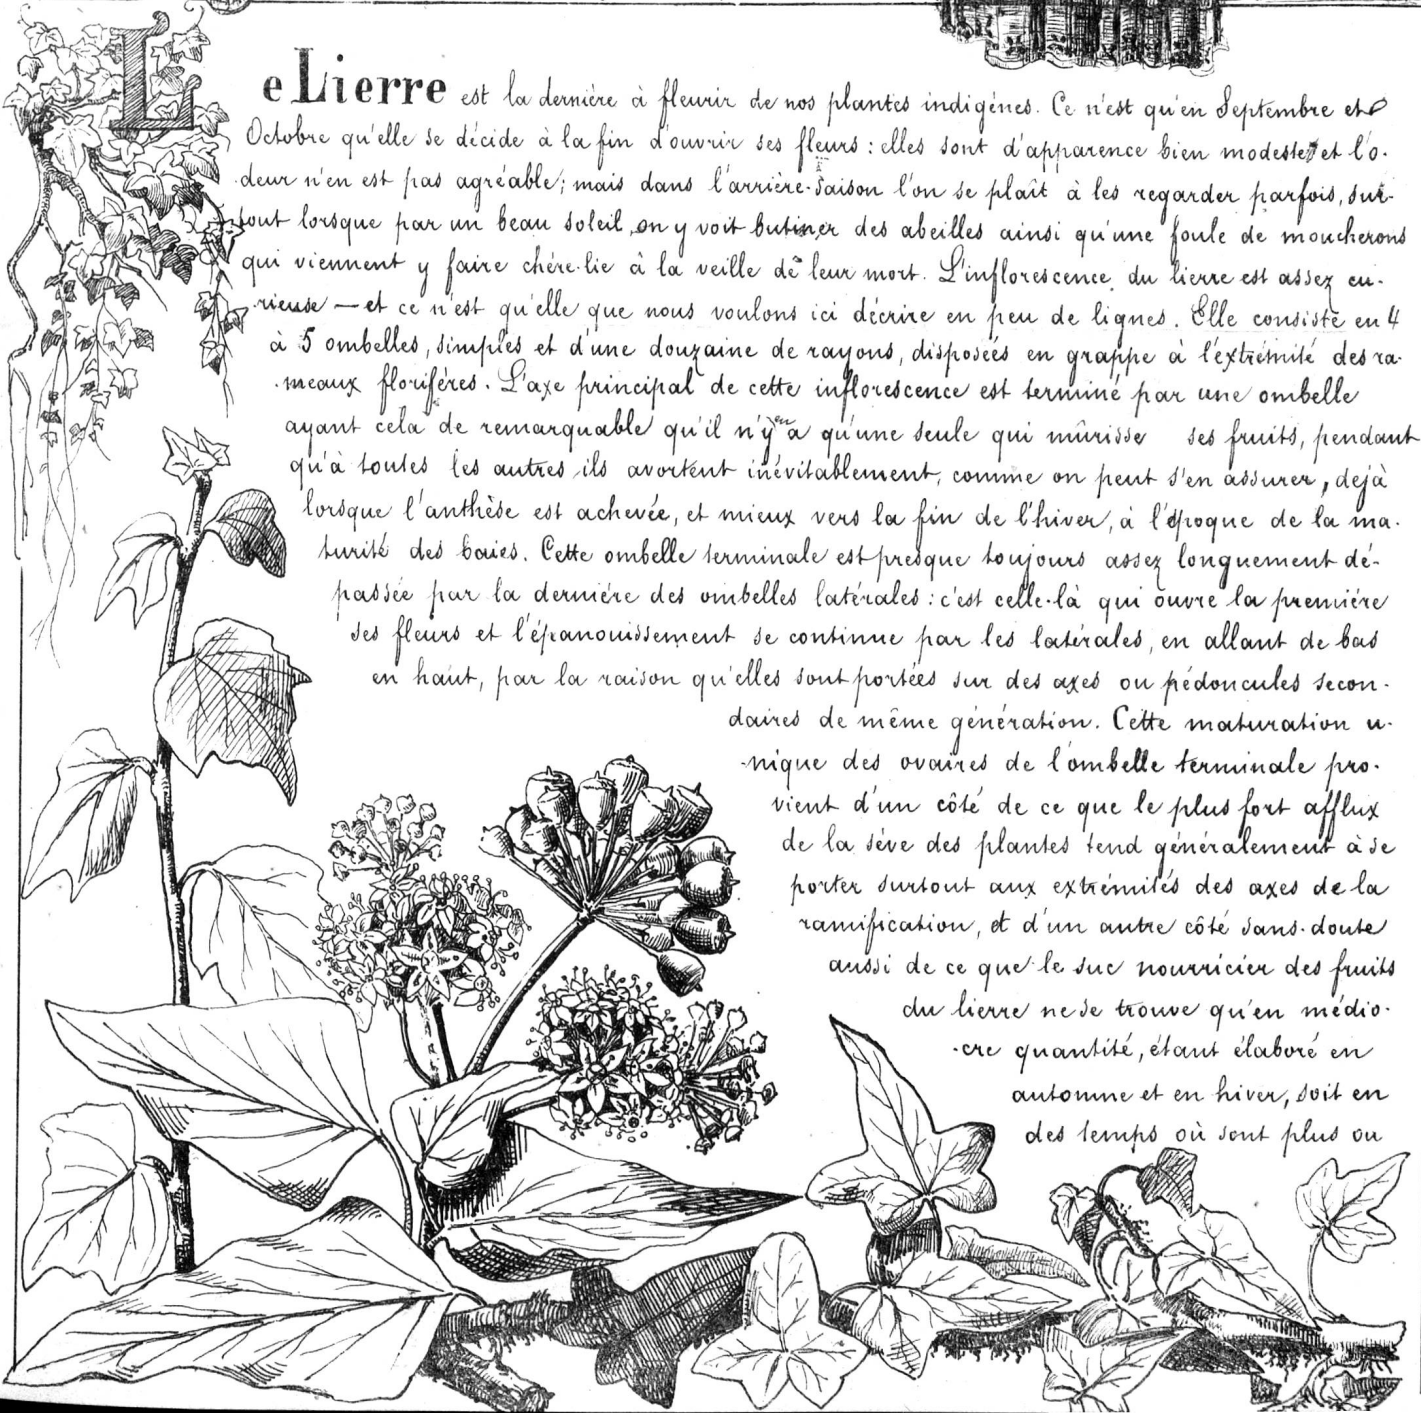 Le Lierre est la dernière à fleurir de nos plantes indigènes. Ce n'est qu'en Septembre et
Octobre qu'elle se décide à la fin d'ouvrir ses fleurs : elles sont d'apparence bien modeste et l'o-
deur n'en est pas agréable ; mais dans l'arrière-saison l'on se plaît à les regarder parfois, sur-
tout lorsque par un beau soleil, on y voit butiner des abeilles ainsi qu'une foule de moucherons
qui viennent y faire chère-lie à la veille de leur mort. L'inflorescence du lierre est assez cu-
rieuse — et ce n'est qu'elle que nous voulons ici décrire en peu de lignes. Elle consiste en 4
à 5 ombelles, simples et d'une douzaine de rayons, disposées en grappe à l'extrémité des ra-
meaux florifères. L'axe principal de cette inflorescence est terminé par une ombelle
ayant cela de remarquable qu'il n'y en a qu'une seule qui mûrisse ses fruits, pendant
qu'à toutes les autres ils avortent inévitablement, comme on peut s'en assurer, dejà
lorsque l'anthèse est achevée, et mieux vers la fin de l'hiver, à l'époque de la ma-
turité des baies. Cette ombelle terminale est presque toujours assez longuement dé-
passée par la dernière des ombelles latérales : c'est celle-là qui ouvre la première
ses fleurs et l'épanouissement se continue par les latérales, en allant de bas
en haut, par la raison qu'elles sont portées sur des axes ou pédoncules secon-
daires de même génération. Cette maturation u-
nique des ovaires de l'ombelle terminale pro-
vient d'un côté de ce que le plus fort afflux
de la sève des plantes tend généralement à se
porter surtout aux extrémités des axes de la
ramification, et d'un autre côté sans-doute
aussi de ce que le suc nourricier des fruits
du lierre ne se trouve qu'en médio-
cre quantité, étant élaboré en
automne et en hiver, soit en
des temps où sont plus ou